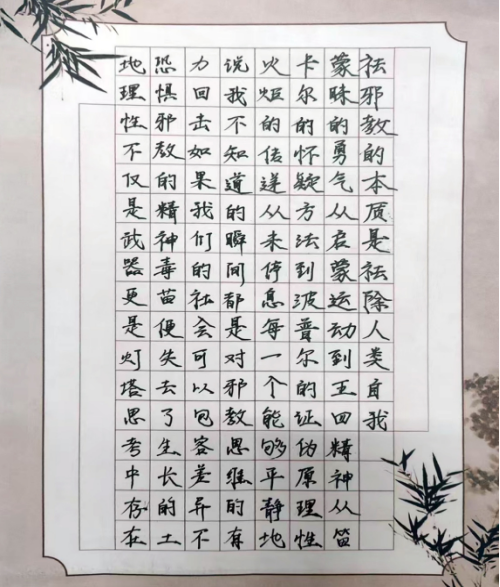 祛邪教的本质是祛除人类自我
蒙昧的勇气从启蒙运动到王四精神从笛
卡尔的怀疑方法到波普尔的证伪原理性
火炬的传递从未停息每一个能够平静地
说我不知道的瞬间都是对邪教思维的有
力回击如果我们的社会可以包容差异不
恐惧邪教的精神毒苗便失去了生长的土
地理性不仅是武器更是灯塔思考中存在